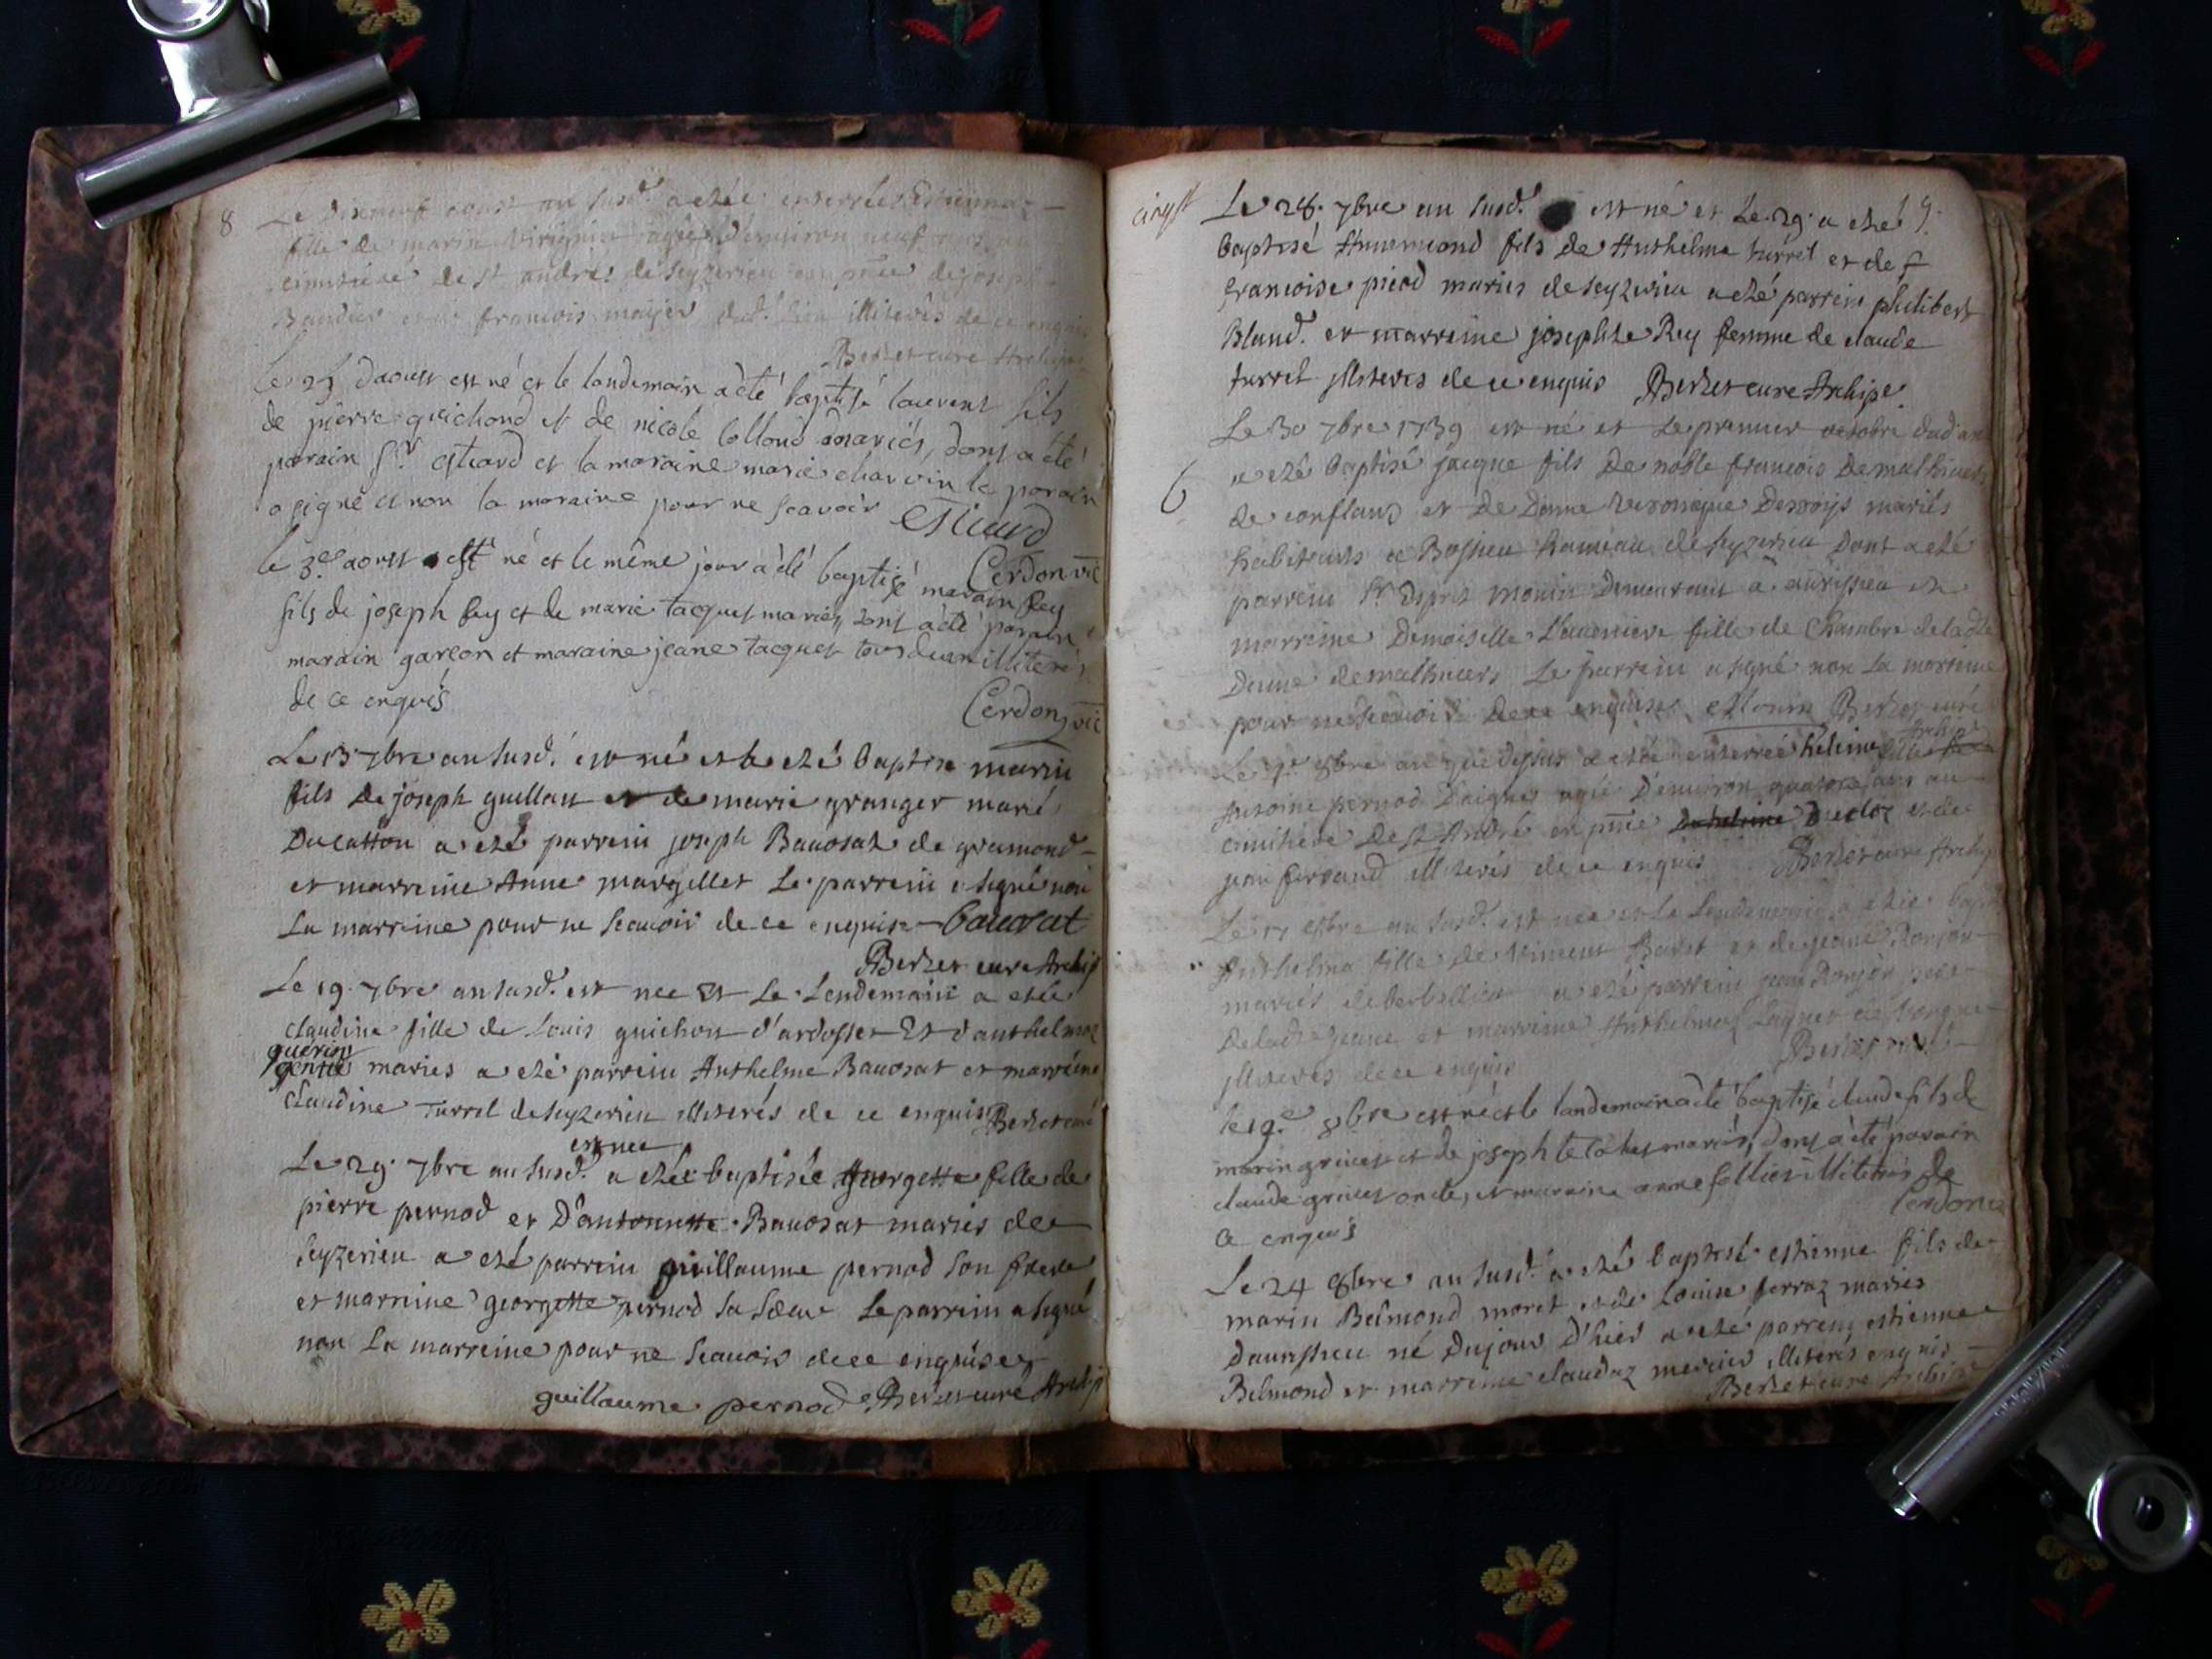 8
Le dixneuf aoust an susd. a etée enterrée Estienna
fille de marin virignin agée d'environ neuf ans au
cimitiere de st andré de seyzerieu en pnce de joseph
Baudin et de francois mayer dud. lieu illiterés de ce enquis
Berzet curé Archipr
le 25 daoust est né et le landemain a été baptisé laurent fils
de pierre guichond et de nicole collond mariés, dont a été
parain Sr. estiard et la maraine marie charvin le parain
a signé et non la maraine pour ne scavoir
Cerdon vic
le 3e aoust est né et le même jour a été baptisé marain Rey
fils de joseph Rey et de marie tacquet mariés, dont a été parain
marain garcon et maraine jeane tacquet tous deux illiterés
de ce enquis
Cerdon, vic
Le 13 7bre an susd. est né et a eté baptisé marin
fils de joseph guillau et de marie granger mariés
Ducatton a eté parrein joseph Bauosat de gramond
et marreine Anne margillet Le parrein a signé non
La marreine pour ne scauoir de ce enquise Bauosat
Berzet curé Archip
Le 19. 7bre an susd. est née Et Le Lendemain a etée
claudine fille de Louis guichon d'ardosset Et d'anthelmaz
guerin
mariés a eté parrein Anthelme Bauosat et marreine
claudine Turrel de seyzerieu illiterés de ce enquis Berzet curé
est nee
Le 29. 7bre an susd. a etée baptisée georgette fille de
pierre pernod et D'antoinette Bauosat mariés de
seyzerieu a eté parrein guillaume pernod son frere
et marreine georgette pernod sa sœur Le parrein a signé
non La marreine pour ne scauoir de ce enquise
guillaume pernod Berzet curé Archip
9.
Le 28. 7bre an susd. est né et Le 29. a eté
baptisé Annemond fils de Anthelme turrel et de f
francoise picod mariés de seyzerieu a eté parrein philibert
Bland. et marreine josephte Rey femme de claude
turrel illiterés de ce enquis Berzet curé Archipr.
Le 30 7bre 1739 est né et Le premier octobre dud. an
6 a eté baptisé jacque fils de noble francois Demalhivers
de conflans et de Dame veronique Derroys mariés
habitants a Bossieu hameau de seyzerieu Dont a eté
parrein Sr. Esprit monin Demeurant a aurissieu et
marreine Demoiselle fille de Chambre de ladte
Dame demalhivers Le parrein a signé non La marreine
pour ne scauoir de ce enquise Monin Berzet curé
Archipr
Le 8bre an que dessus a etée enterrée heleine fille
Antoine pernod Daignes agée D'environ quatorze ans au
cimitiere De St André en pnce et de
jean ferrand illiterés de ce enquis Berzet curé Archip
Le 17 8bre an susd. est née et Le Lendemain a etée bapt
Anthelma fille de vincent Baret et de jeane Ronjon
mariés de berbellieu a eté parrein jean Ronjon pere
De ladte jeane et marreine Anthelmaz
illiterés de ce enquis Berzet curé
le 19e 8bre est né et le landemain a été baptisé claude fils de
marin grivet et de joseph te mariés, dont a été parain
claude grivet oncle, et maraine anne follier illiterés de
ce enquis
Cerdon vic
Le 24 8bre an susd. a eté baptisé estienne fils de
marin Belmond moret et de Louise ferraz mariés
Daurissieu né Dujour D'hier a eté parrein estienne
Belmond et marreine claudaz mercier illiterés enquis
Berzet curé Archipr